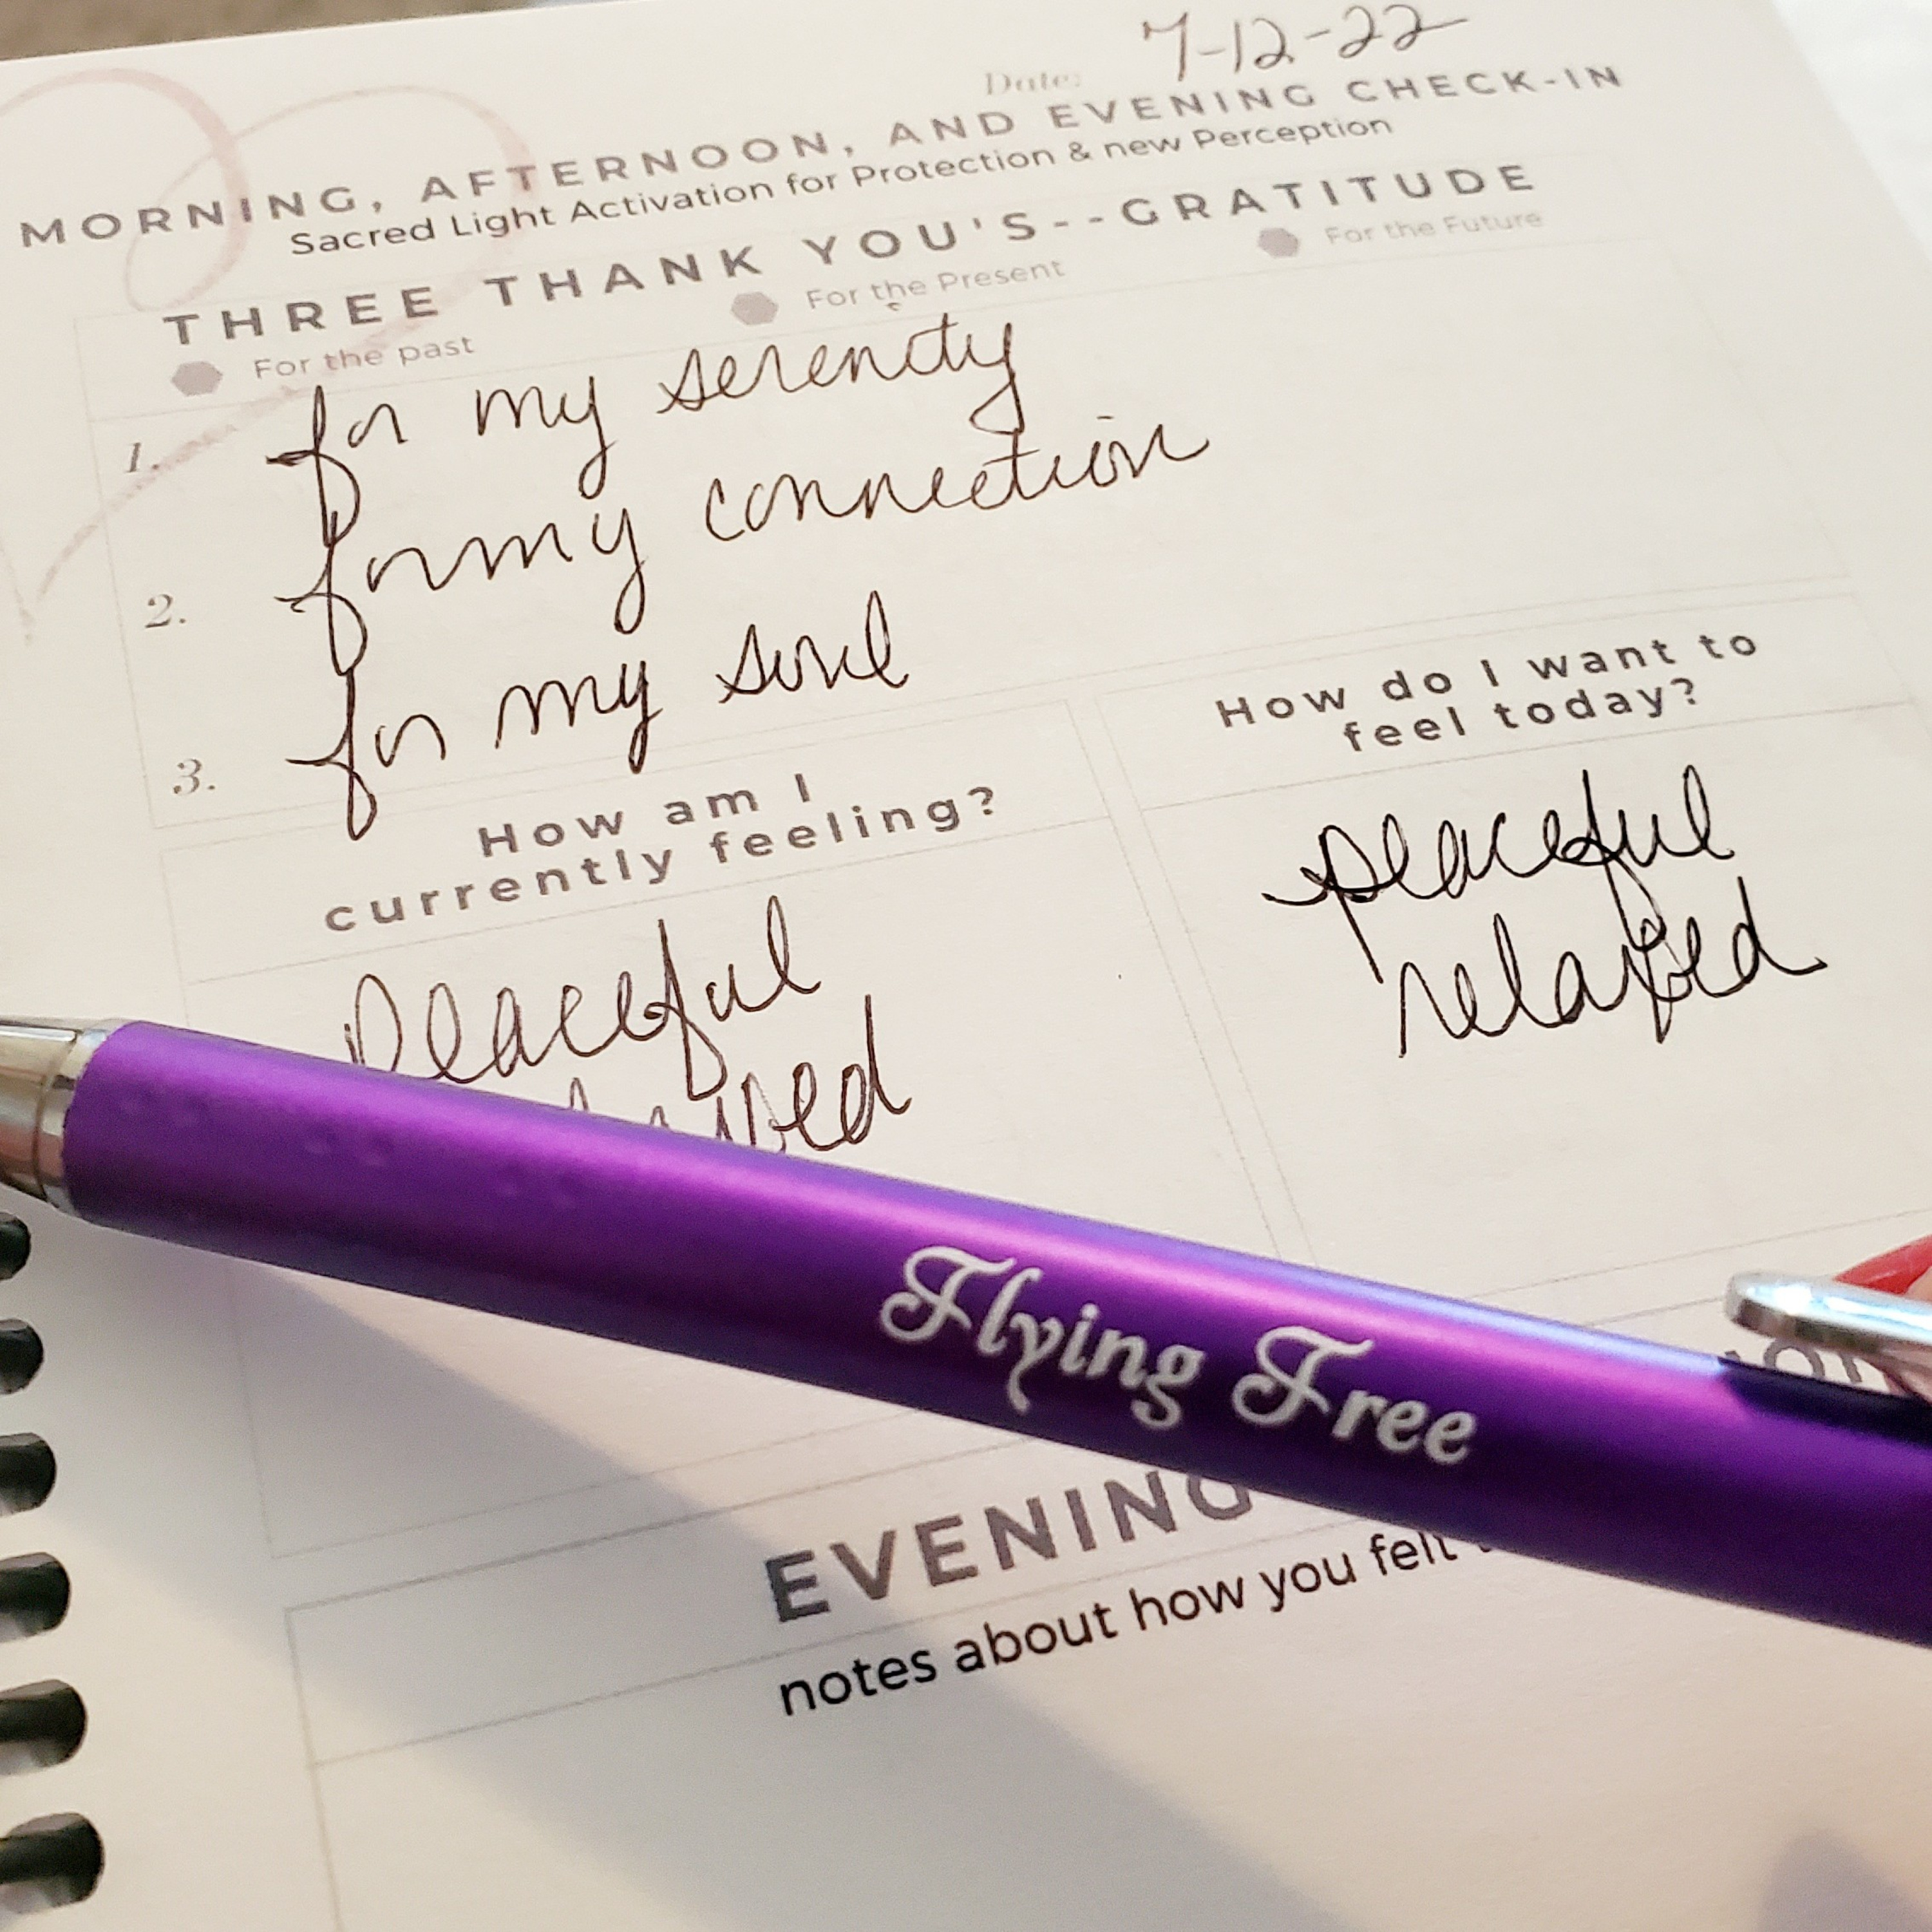 Date: 7-12-22
MORNING, AFTERNOON, AND EVENING CHECK-IN
Sacred Light Activation for Protection & new Perception
THREE THANK YOU'S--GRATITUDE
For the past For the Present For the Future
1. for my serenity
2. for my connection
3. for my soul
How am I
currently feeling?
Peaceful
How do I want to
feel today?
peaceful
relaxed
Flying Free
EVENING
notes about how you felt